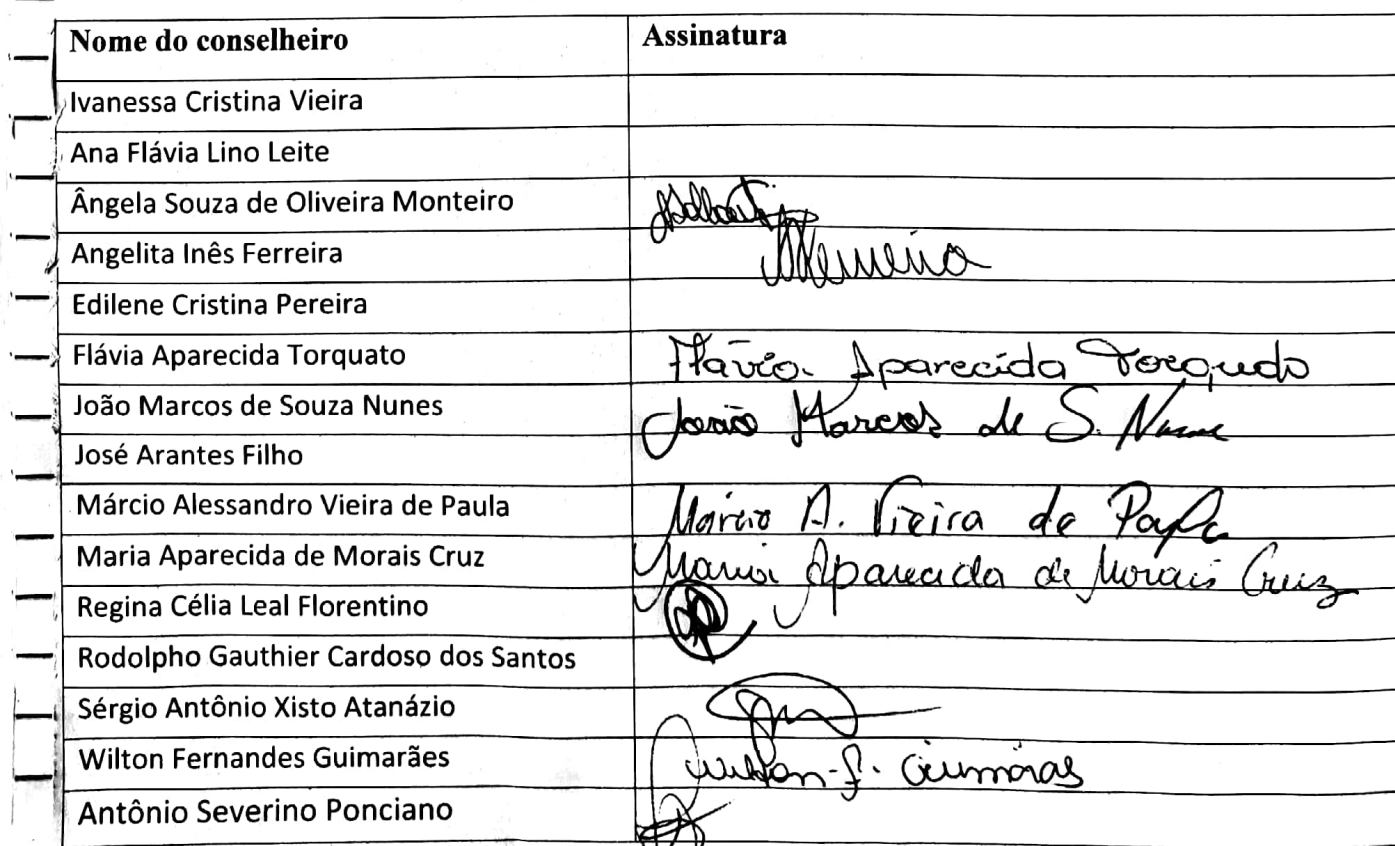 Nome do conselheiro Assinatura
Ivanessa Cristina Vieira
Ana Flávia Lino Leite
Ângela Souza de Oliveira Monteiro
Angelita Inês Ferreira
Edilene Cristina Pereira
Flávia Aparecida Torquato Flávia Aparecida Torquato
João Marcos de Souza Nunes João Marcos de S. Nunes
José Arantes Filho
Márcio Alessandro Vieira de Paula Márcio A. Vieira de Paula
Maria Aparecida de Morais Cruz Maria Aparecida de Morais Cruz
Regina Célia Leal Florentino
Rodolpho Gauthier Cardoso dos Santos
Sérgio Antônio Xisto Atanázio
Wilton Fernandes Guimarães Wilton f. Guimarães
Antônio Severino Ponciano